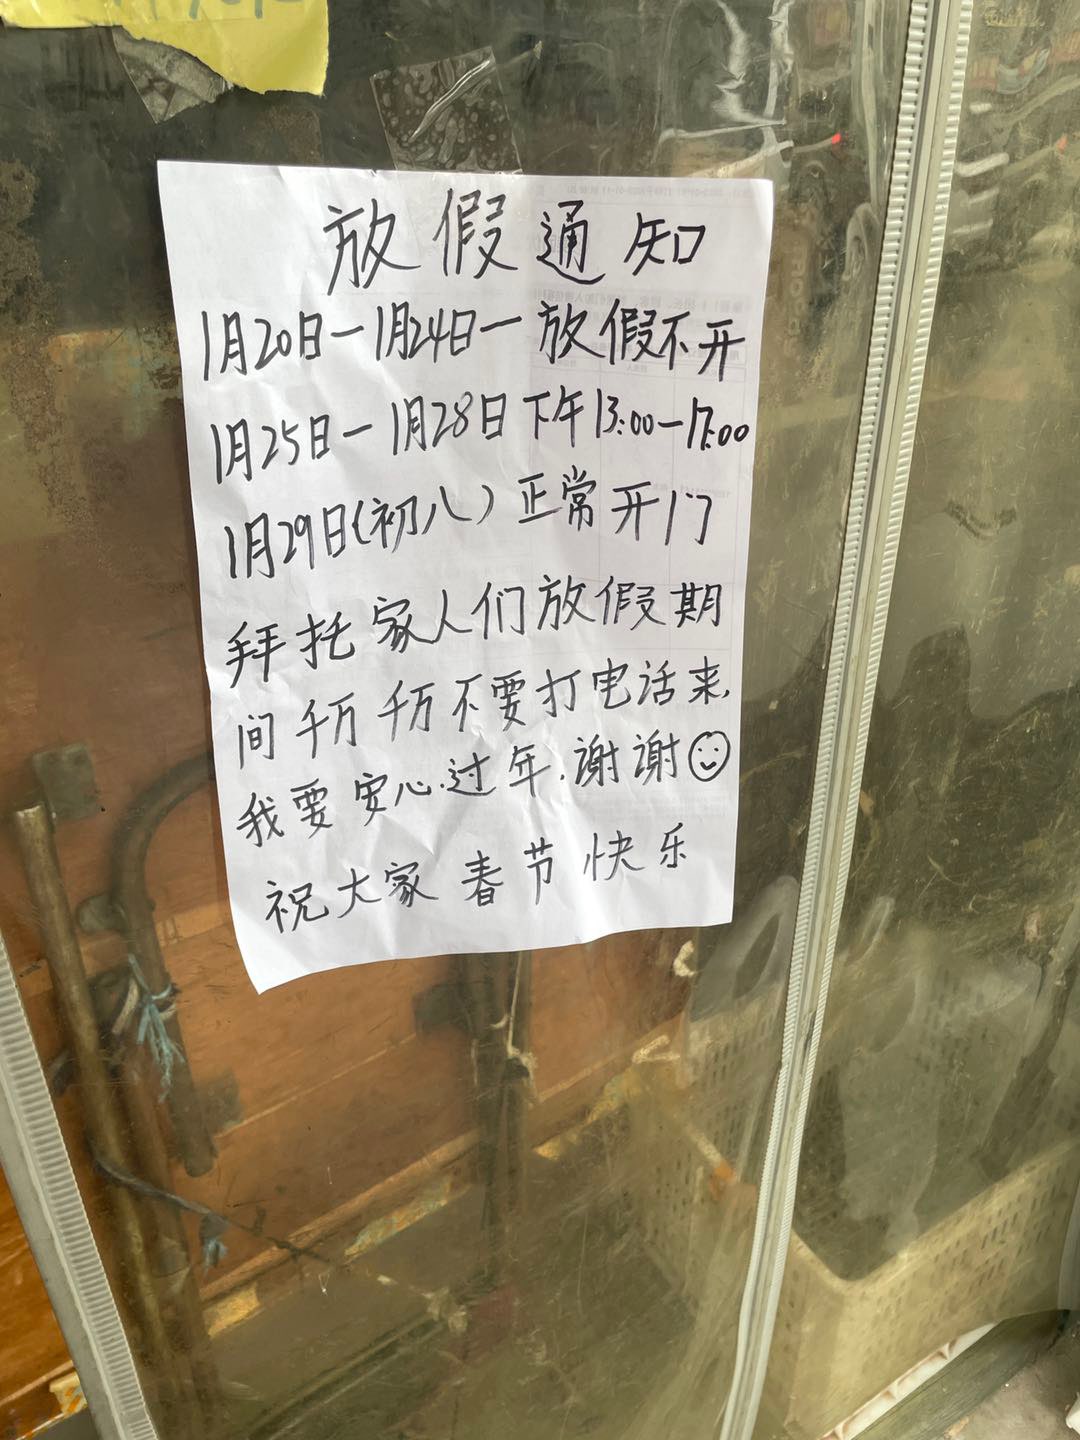 放假通知
1月20日—1月24日—放假不开
1月25日—1月28日下午13:00—17:00
1月29日(初八)正常开门
拜托家人们放假期
间千万千万不要打电话来,
我要安心过年.谢谢☺
祝大家春节快乐